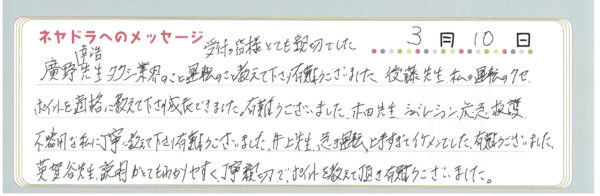 ネヤドラへのメッセージ
受付の皆様とても親切でした。
3月10日
廣野達浩先生 タクシー業界のこと運転のこと教えて下さり有難うございました。後藤先生 私の運転のクセ、
ポイントを適格に教えて下さり成長できました。有難うございました。本田先生 シミュレーション、応急救護
不器用な私に丁寧に教えて下さり有難うございました。井上先生、運転上手すぎてイケメンでした。有難うございました。
英賀谷先生、説明がとてもわかりやすく、丁寧親切でポイントを教えて頂き有難うございました。